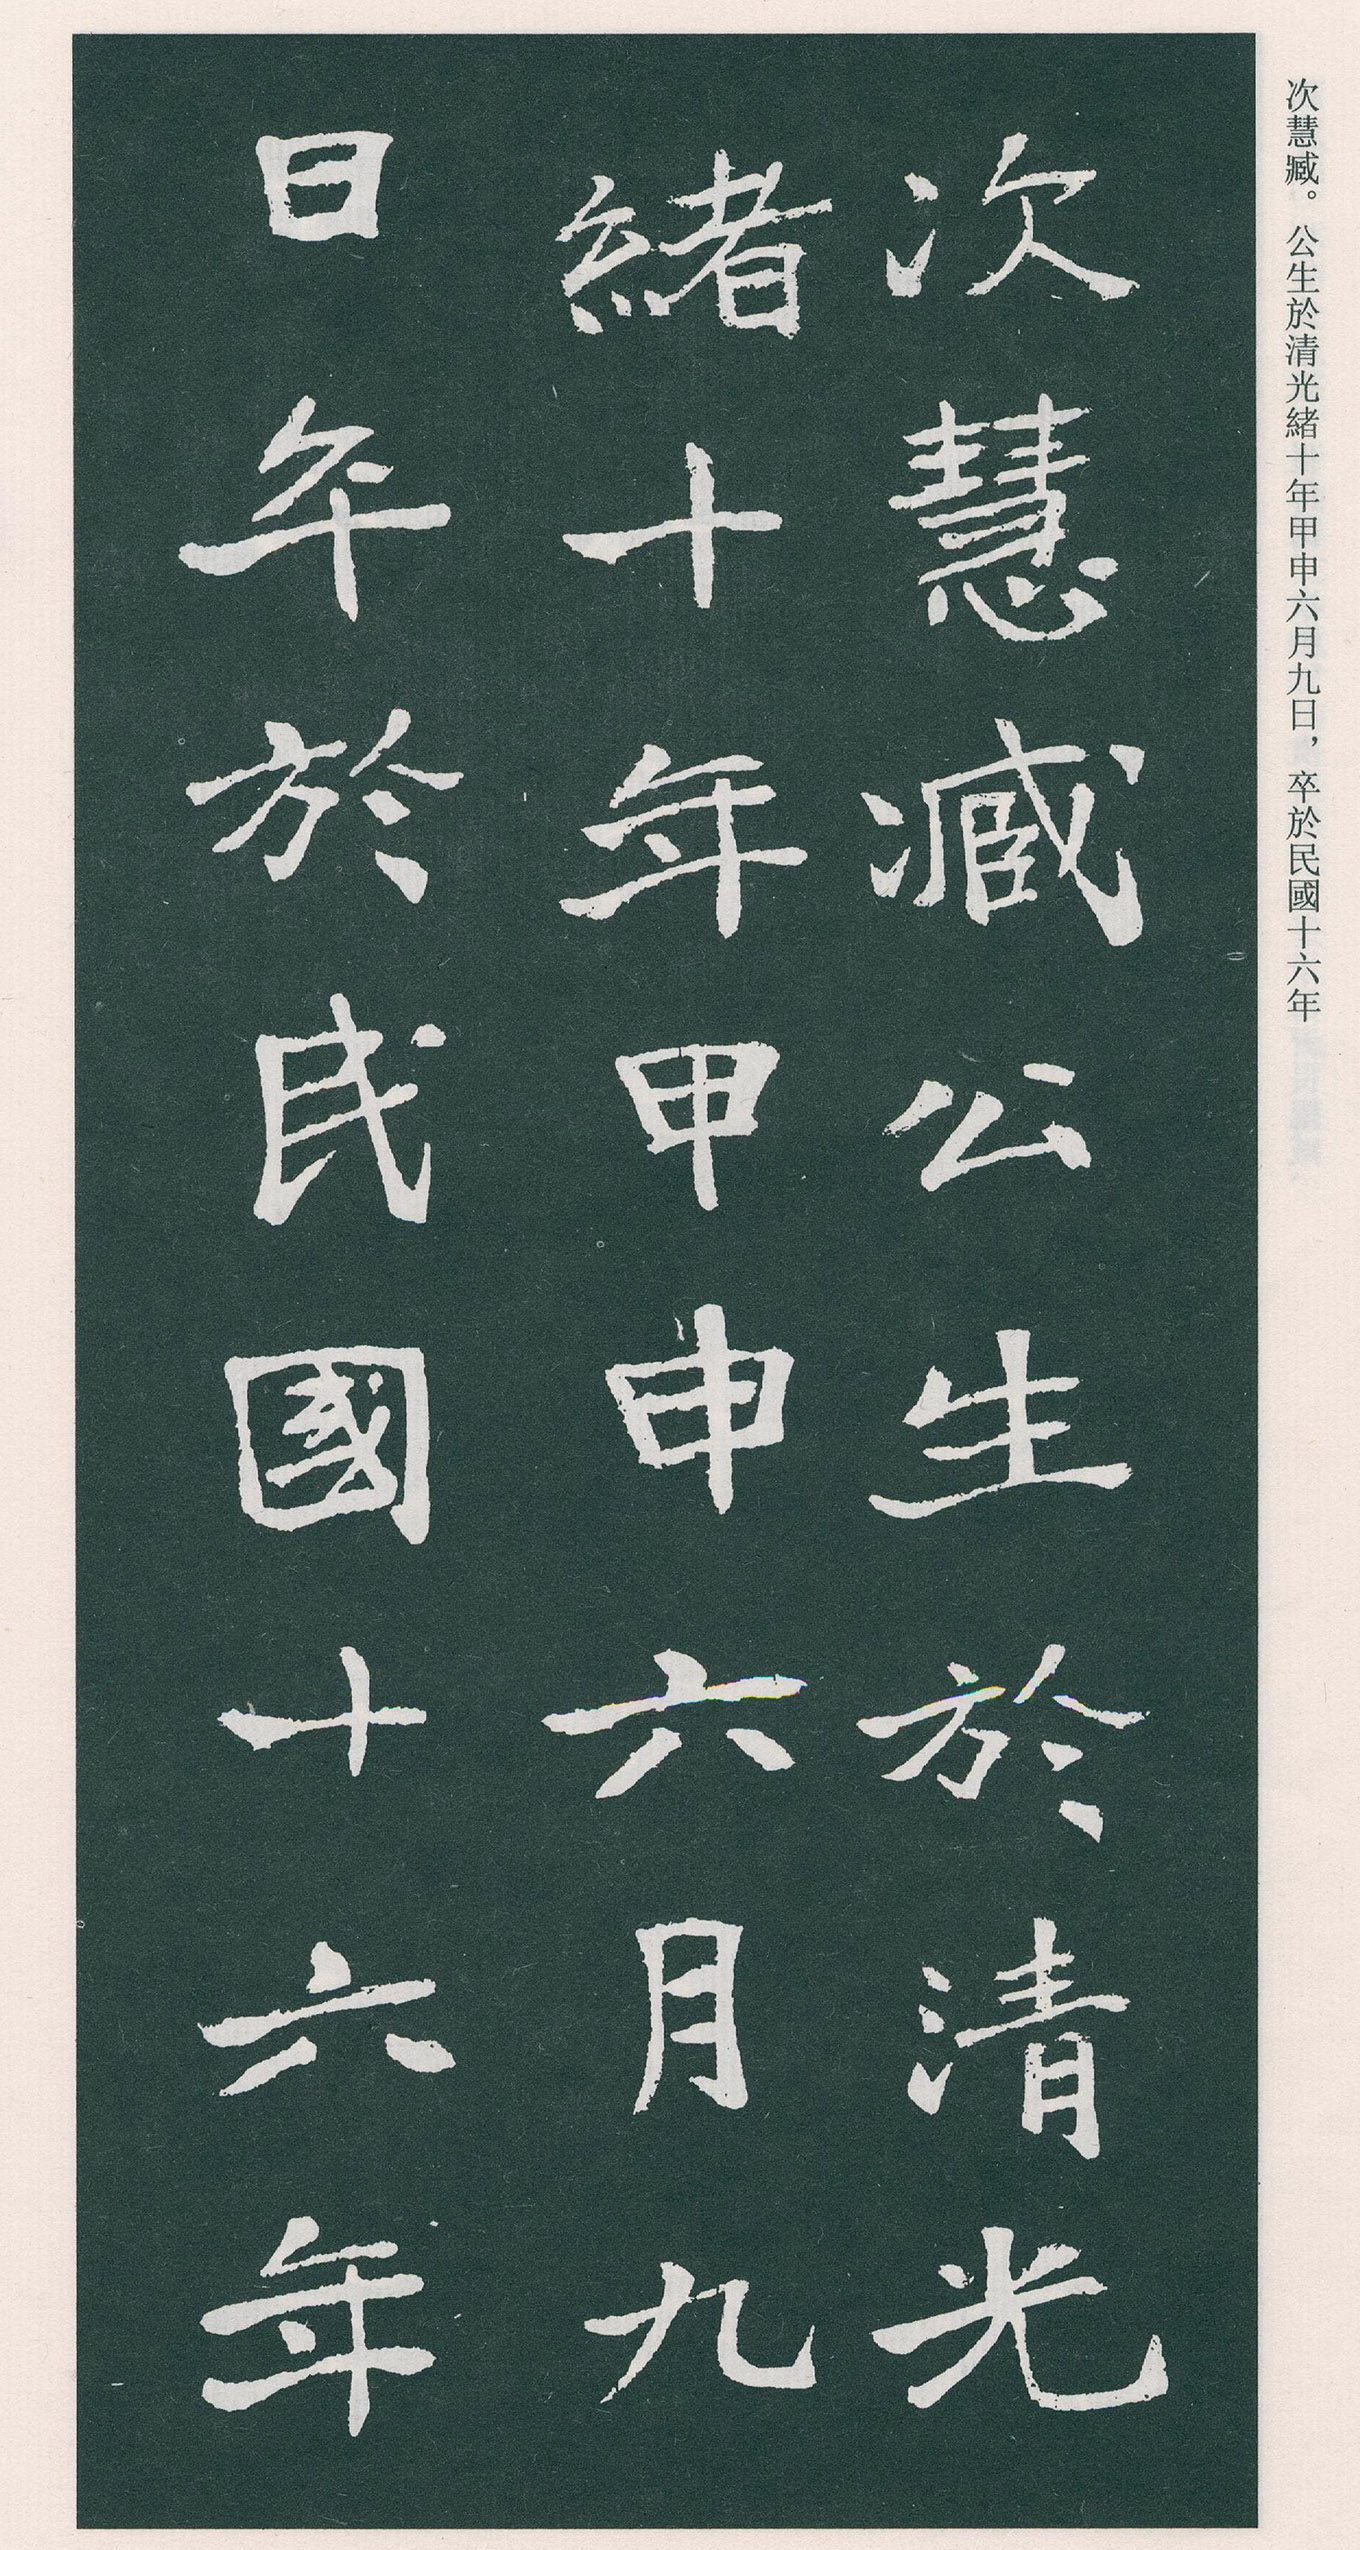 次慧臧。公生於清光緒十年甲申六月九日，卒於民國十六年
次慧臧公生於清光
緒十年甲申六月九
日卒於民國十六年